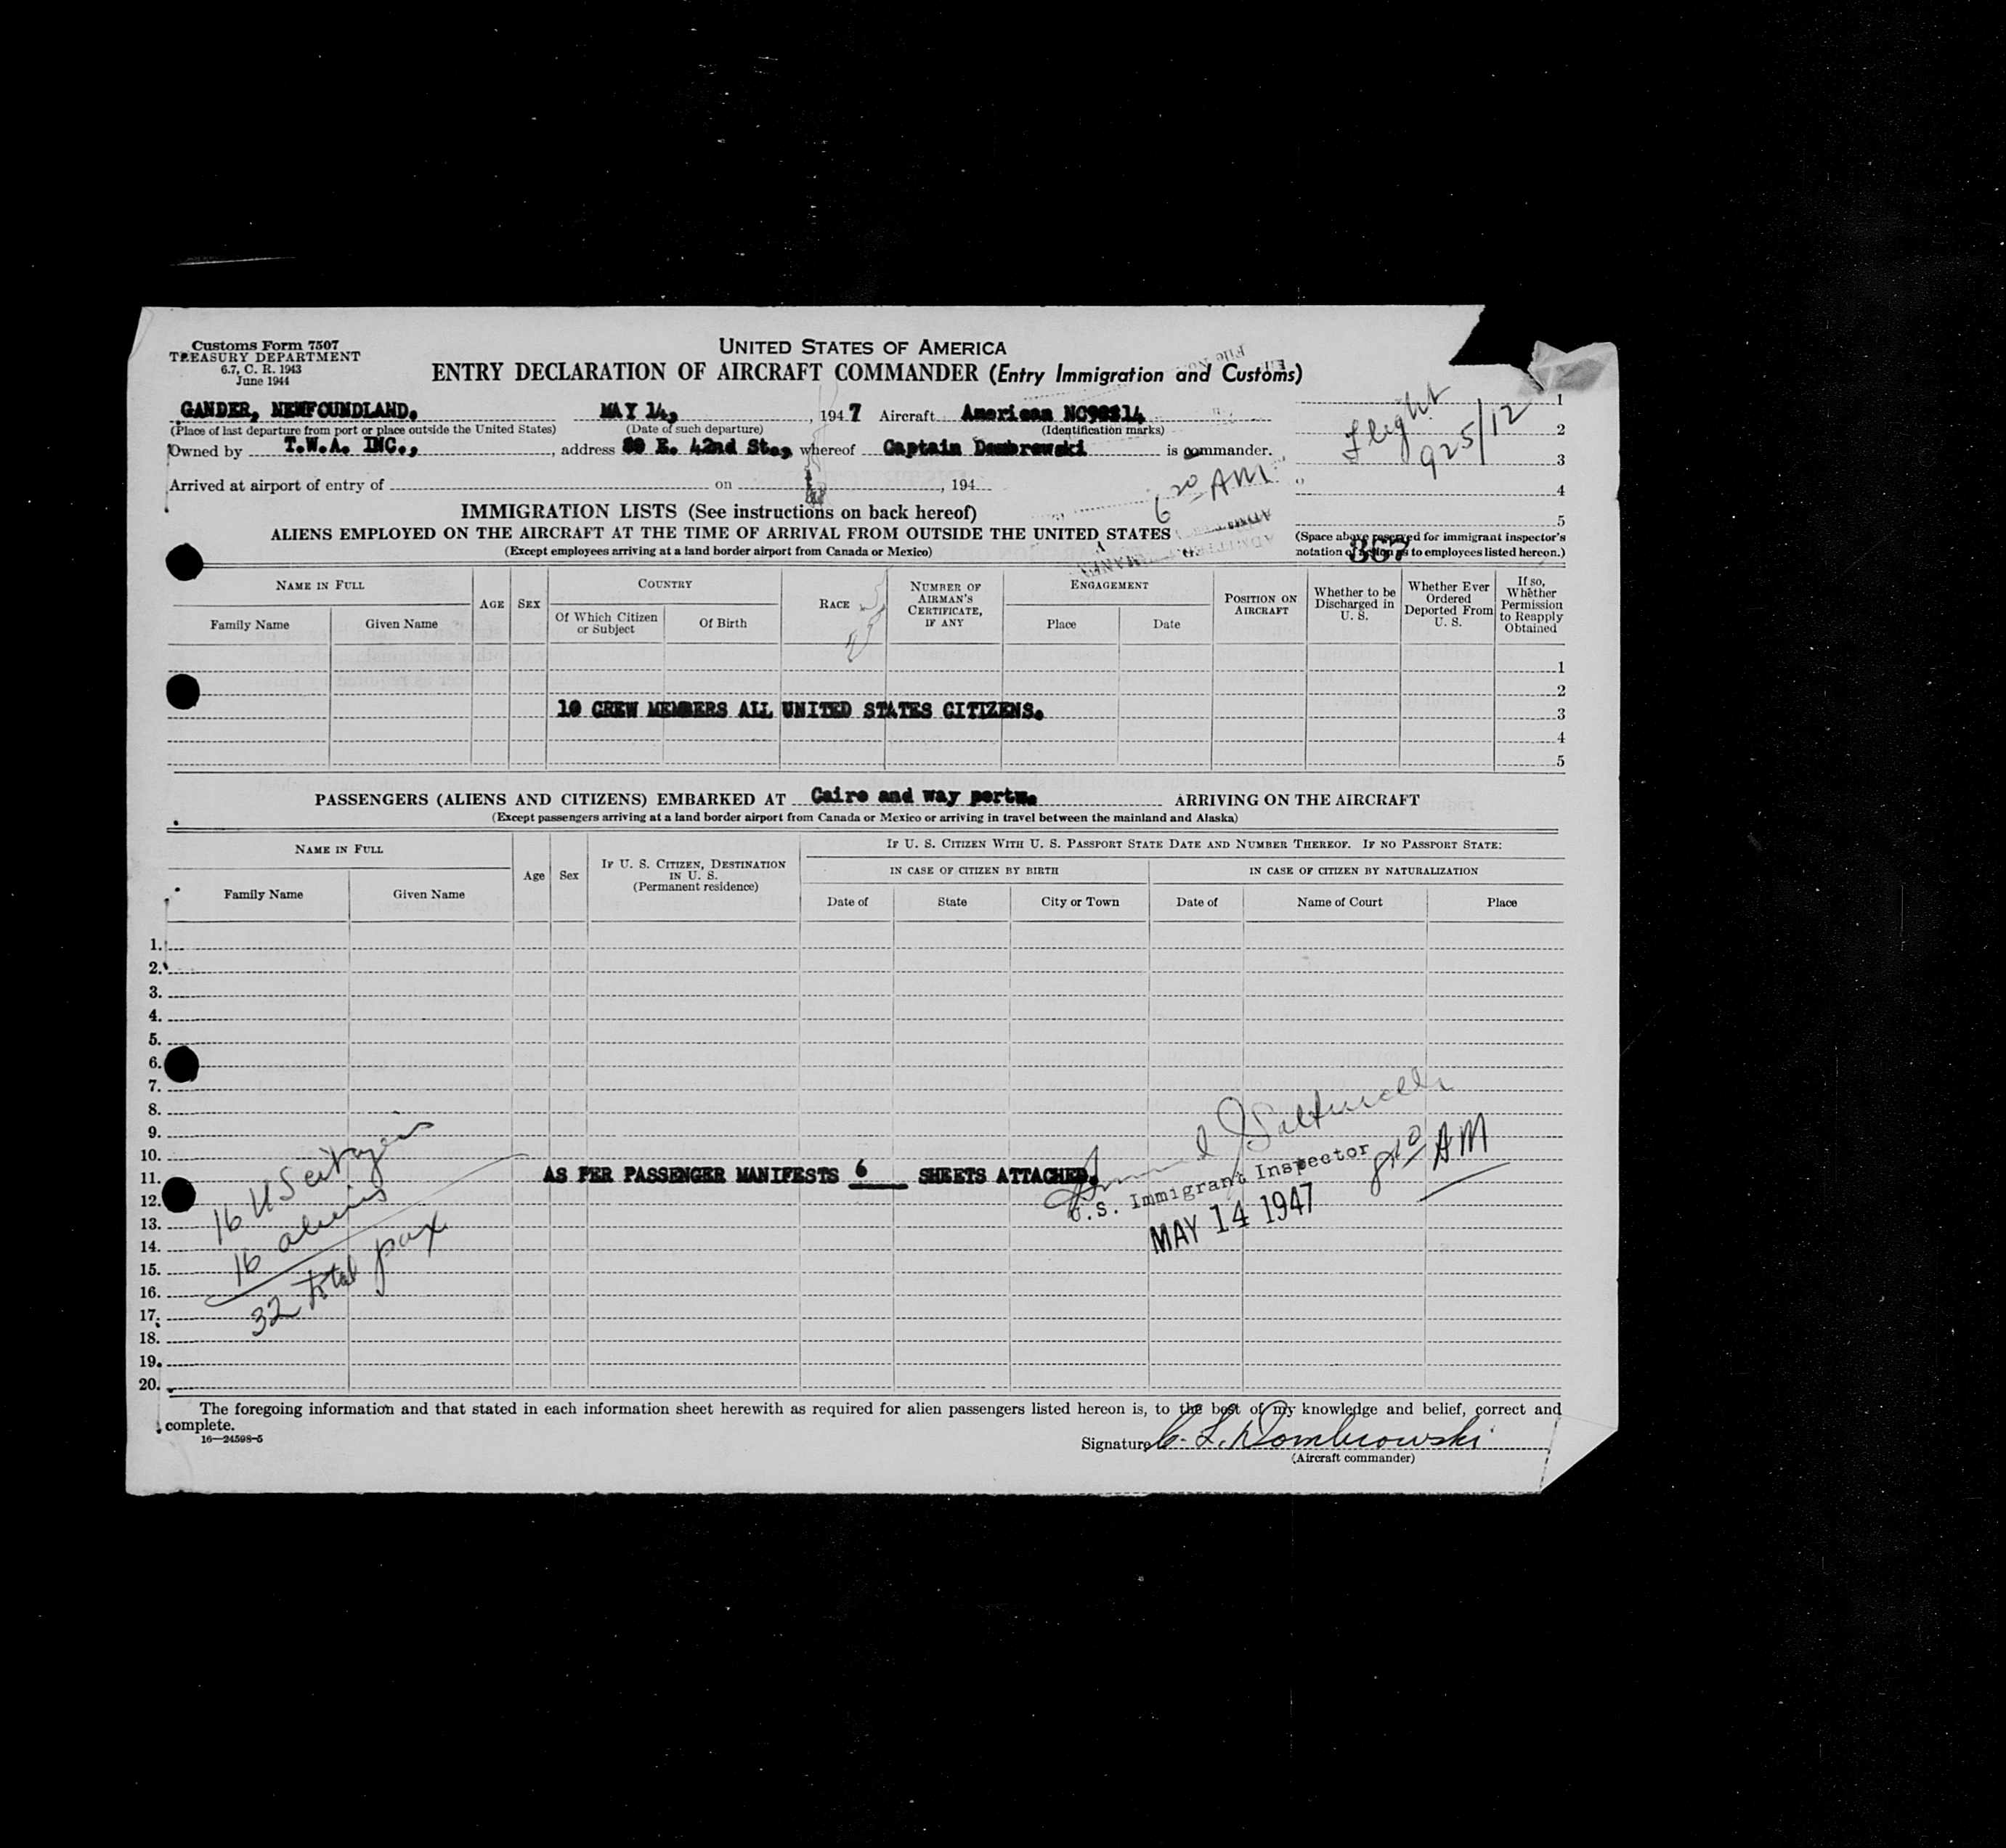 Customs Form 7507
TREASURY DEPARTMENT
6.7, C. R. 1943
June 1944
UNITED STATES OF AMERICA
ENTRY DECLARATION OF AIRCRAFT COMMANDER (Entry Immigration and Customs)
GANDER, NEWFOUNDLAND. MAY 14, 1947 Aircraft American
(Place of last departure from port or place outside the United States) (Date of such departure) (Identification marks)
Owned by T.W.A. INC., , address E. 42nd St., whereof Captain Dombrowski is commander.
Arrived at airport of entry of on , 194
Flight
925/12
6 20 AM
1
2
3
4
5
IMMIGRATION LISTS (See instructions on back hereof)
ALIENS EMPLOYED ON THE AIRCRAFT AT THE TIME OF ARRIVAL FROM OUTSIDE THE UNITED STATES
(Except employees arriving at a land border airport from Canada or Mexico)
(Space above reserved for immigrant inspector's
notation of action as to employees listed hereon.)
357
NAME IN FULL
Family Name Given Name
AGE SEX
COUNTRY
Of Which Citizen or Subject Of Birth
RACE
NUMBER OF AIRMAN'S CERTIFICATE, IF ANY
ENGAGEMENT
Place Date
POSITION ON AIRCRAFT
Whether to be Discharged in U. S.
Whether Ever Ordered Deported From U. S.
If so, Whether Permission to Reapply Obtained
1
2
10 CREW MEMBERS ALL UNITED STATES CITIZENS. 3
4
5
PASSENGERS (ALIENS AND CITIZENS) EMBARKED AT Cairo and way ports. ARRIVING ON THE AIRCRAFT
(Except passengers arriving at a land border airport from Canada or Mexico or arriving in travel between the mainland and Alaska)
NAME IN FULL
Family Name Given Name
Age Sex
IF U. S. CITIZEN, DESTINATION IN U. S.
(Permanent residence)
IF U. S. CITIZEN WITH U. S. PASSPORT STATE DATE AND NUMBER THEREOF. IF NO PASSPORT STATE:
IN CASE OF CITIZEN BY BIRTH IN CASE OF CITIZEN BY NATURALIZATION
Date of State City or Town Date of Name of Court Place
1.
2.
3.
4.
5.
6.
7.
8.
9.
10.
11. AS PER PASSENGER MANIFESTS 6 SHEETS ATTACHED.
12.
13.
14.
15.
16.
17.
18.
19.
20.
16 US citizens
16 aliens
32 total pax
U.S. Immigrant Inspector
MAY 14 1947
8 10 AM
The foregoing information and that stated in each information sheet herewith as required for alien passengers listed hereon is, to the best of my knowledge and belief, correct and
complete.
16—24598-5
Signature C. L. Dombrowski
(Aircraft commander)